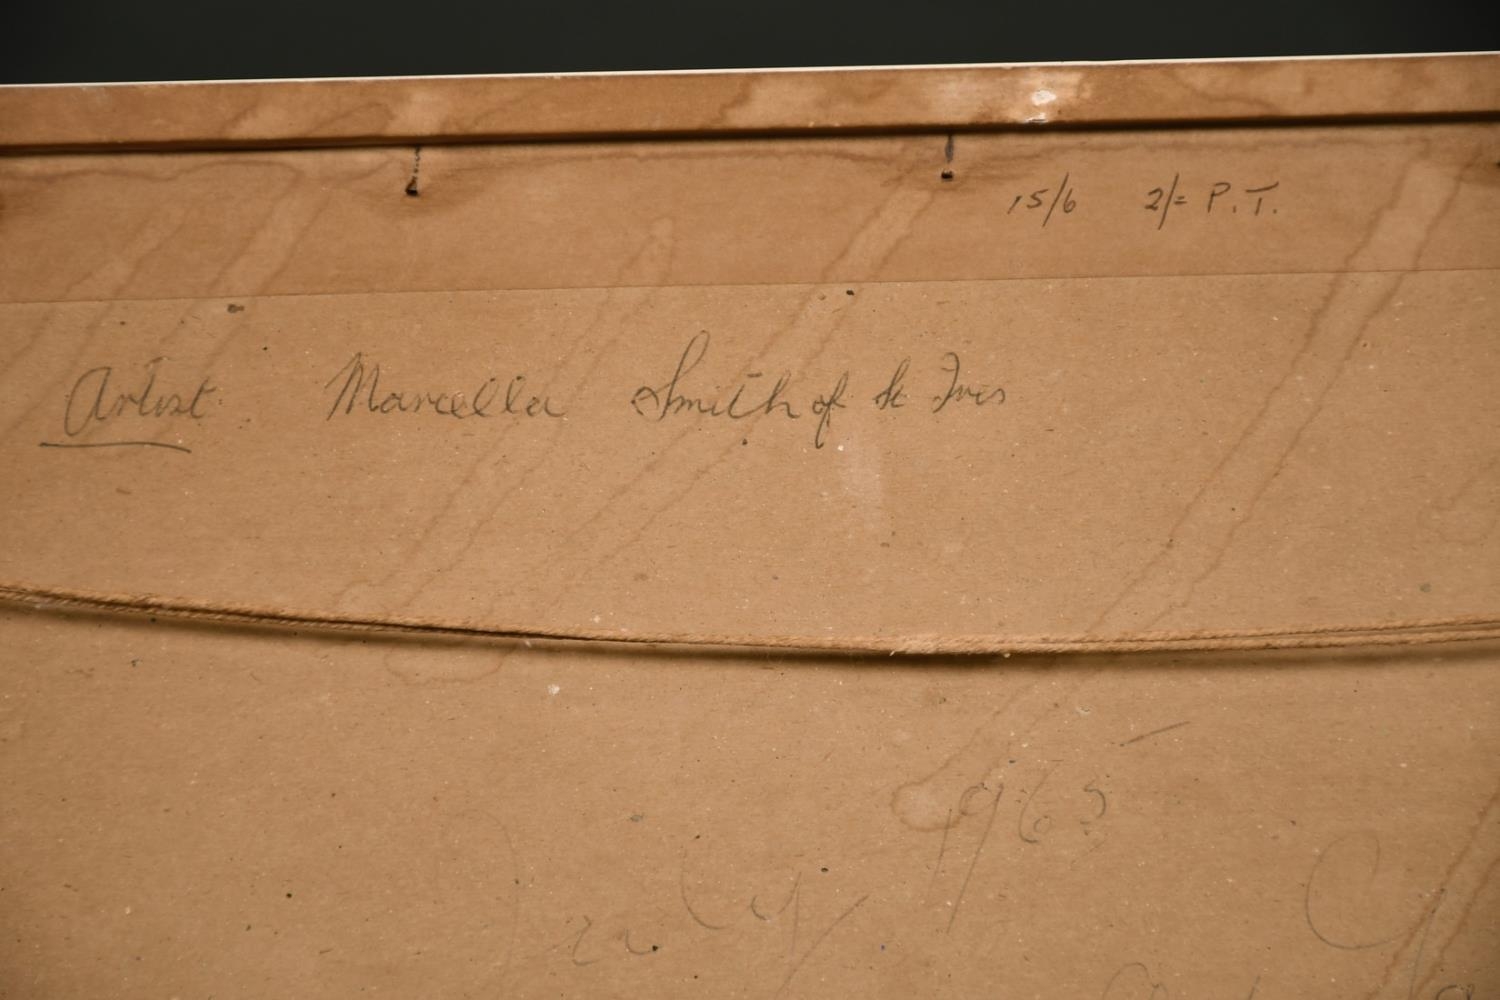 15/6 2/= P.T.
Artist Marcella Smith of St Ives
1965